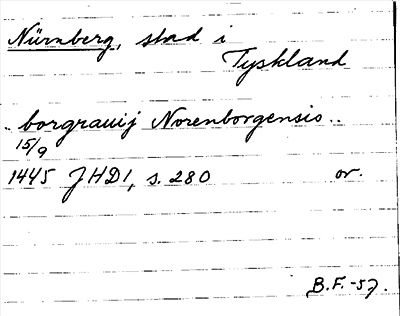 Nürnberg, stad i
Tyskland
.. borgrauij Norenborgensis ..
15/9
1445 JHD1, s. 280 or.
B.F.-57.